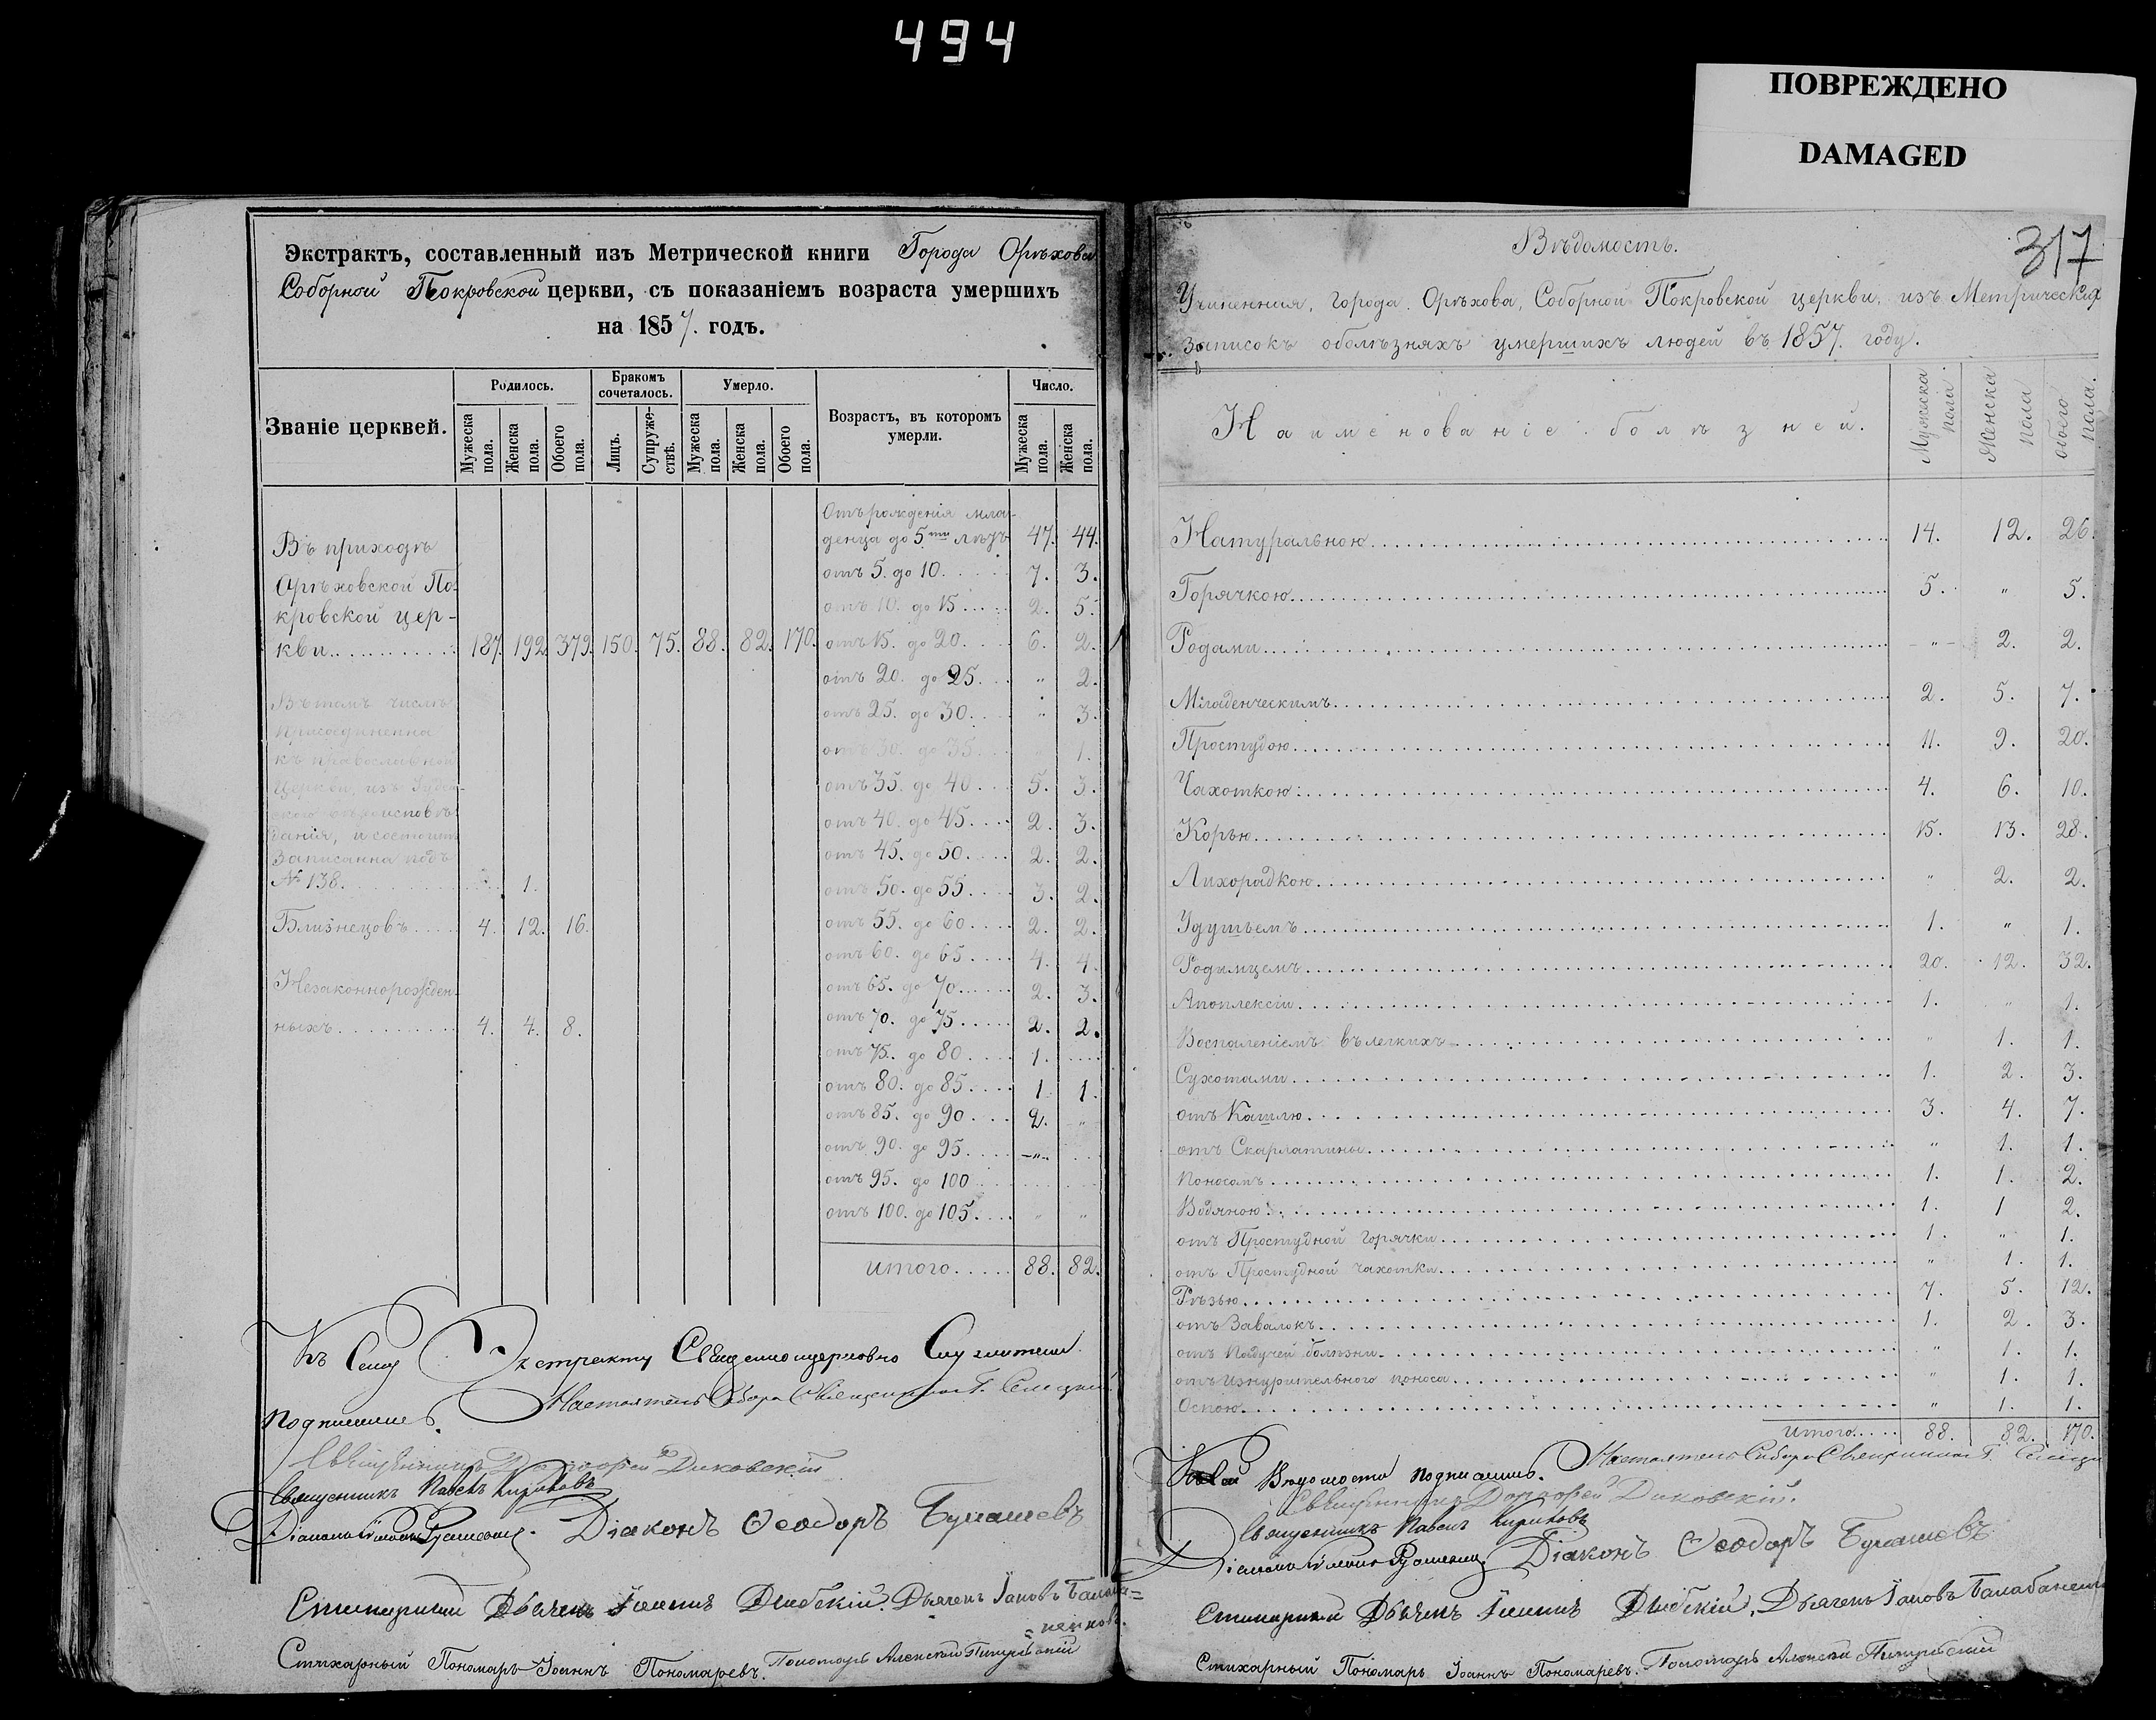 494
ПОВРЕЖДЕНО
DAMAGED
Экстрактъ, составленный изъ Метрической книги Города Орѣхова
Соборной Покровской церкви, съ показаніемъ возраста умершихъ
на 1857. годъ.
Званіе церквей.
Родилось.
Бракомъ сочеталось.
Умерло.
Возрастъ, въ которомъ умерли.
Число.
Мужеска пола.
Женска пола.
Обоего пола.
Лицъ.
Супружествъ.
Мужеска пола.
Женска пола.
Обоего пола.
Мужеска пола.
Женска пола.
Въ приходѣ
Орѣховской По-
кровской цер-
кви. 187. 192. 379. 150. 75. 88. 82. 170.
Въ томъ числѣ
присоединенна
къ православной
Церкви, изъ Іудей-
скаго вѣроисповѣ-
данія, и состоитъ
Записанна подъ
№ 138. 1.
Близнецовъ 4. 12. 16.
Незаконнорожден-
ныхъ 4. 4. 8.
Отъ рожденія мла-
денца до 5ти лѣтъ 47. 44.
отъ 5. до 10. 7. 3.
отъ 10. до 15 2. 5.
отъ 15. до 20. 6. 2.
отъ 20. до 25. „ 2.
отъ 25. до 30. „ 3.
отъ 30. до 35. „ 1.
отъ 35. до 40 5. 3.
отъ 40. до 45. 2. 3.
отъ 45. до 50. 2. 2.
отъ 50. до 55. 3. 2.
отъ 55. до 60. 2. 2.
отъ 60. до 65 4. 4.
отъ 65. до 70. 2. 3.
отъ 70. до 75 2. 2.
отъ 75. до 80 1.
отъ 80. до 85. 1. 1.
отъ 85. до 90. 2. „
отъ 90. до 95. „
отъ 95. до 100
отъ 100. до 105. „ „
итого 88. 82.
Къ сему Экстракту Священноцерковно Служители
подписались. Настоятель Собора Священникъ Г.
Священникъ Дорофей Диковскій
Священникъ Павелъ Кириковъ
Діаконъ Діаконъ Ѳеодоръ Бугашевъ
Стихарный Дьячекъ Іоаннъ Дьячекъ Іаковъ
Стихарный Пономарь Іоаннъ Пономаревъ. Пономарь Алексей
317
Вѣдомость.
Учиненная, города Орѣхова, Соборной Покровской церкви, изъ Метрическихъ
Записокъ оболѣзняхъ умершихъ людей въ 1857. году.
Наименованіе болѣзней.
Мужска пола
Женска пола
обоего пола.
Натуральною 14. 12. 26.
Горячкою 5. „ 5.
Родами „ 2. 2.
Младенческимъ 2. 5. 7.
Простудою 11. 9. 20.
Чахоткою 4. 6. 10.
Корью 15. 13. 28.
Лихорадкою „ 2. 2.
Удушьемъ 1. „ 1.
Родимцемъ 20. 12. 32.
Апоплексіи 1. „ 1.
Воспаленіемъ въ легкихъ „ 1. 1.
Сухотами 1. 2. 3.
отъ Кашлю 3. 4. 7.
отъ Скарлатины „ 1. 1.
Поносомъ 1. 1. 2.
Водяною 1. 1 2.
отъ Простудной горячки 1. „ 1.
отъ Простудной чахотки „ 1. 1.
Рѣзью 7. 5. 12.
отъ Завалокъ 1. 2. 3.
отъ Падучей болѣзни „ 1. 1.
отъ изнурительнаго поноса „ 1. 1.
Оспою „ 1. 1.
итого 88. 82. 170.
Къ сей Вѣдомости подписались. Настоятель Собора Священникъ Г.
Священникъ Дорофей Диковскій.
Священникъ Павелъ Кириковъ
Діаконъ Діаконъ Ѳеодоръ Бугашевъ
Стихарный Дьячекъ Іоаннъ Дьячекъ Іаковъ
Стихарный Пономарь Іоаннъ Пономаревъ. Пономарь Алексей